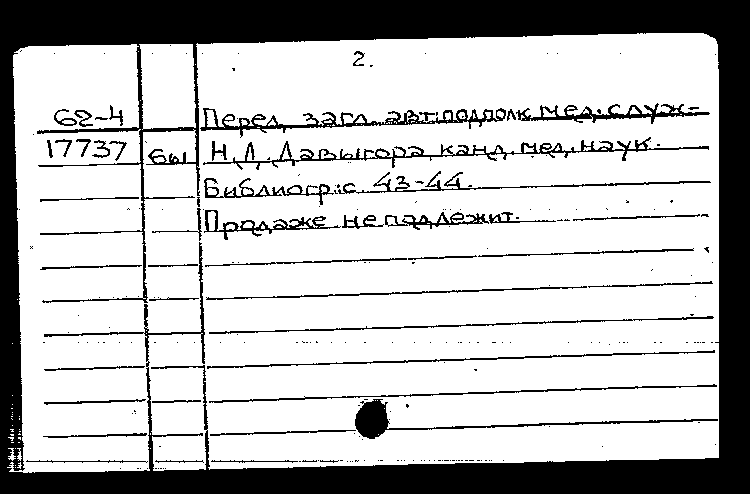 2.
62-4 Перед загл. авт: подполк мед. служ-
17737 бы Н. Л. Давыгора, канд. мед. наук.
Библиогр: с 43-44.
Продаже не подлежит.